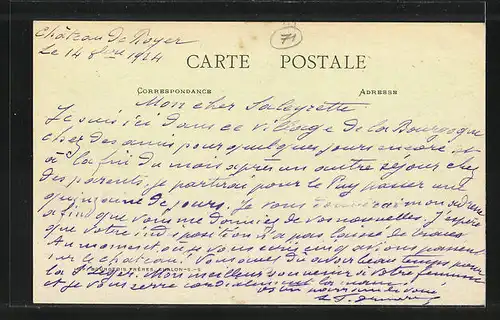 Château de Royer
Le 14 8bre 1924
71
CARTE POSTALE
CORRESPONDANCE
ADRESSE
Mon cher Saleyrette
Je suis ici dans ce village de la Bourgogne
chez des amis pour quelques jours encore, et
à la fin du mois après un autre séjour chez
des parents, je partirai pour le Puy passer une
quinzaine de jours. Je vous donnerai mon adresse
afin que vous me donniez de vos nouvelles. J'espère
que votre indisposition n'a pas laissé de traces
Au moment où je vous écris cinq avions passent
sur le château. Vous avez dû avoir beau temps pour
BOURGEOIS FRÈRES, CHALON-S-S
la . Mon meilleur souvenir à votre femme
et je vous serre cordialement la main.